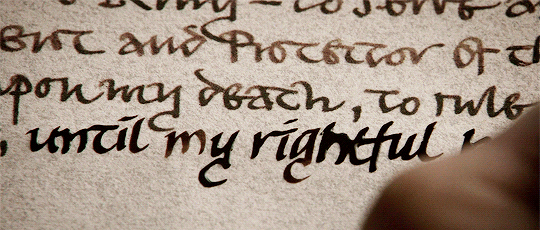 to serve
ent and Protector of th
upon my death, to rule
, until my rightful